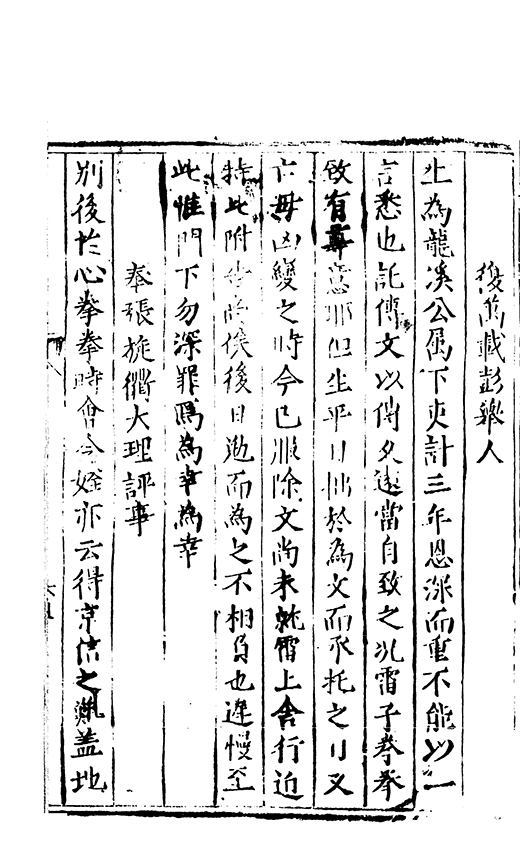 復萬載彭舉人
生為龍溪公屬下吏計三年恩深而重不能以一
言悉也託傳文以傳久遠當自致之况雷子拳拳
致有尊意耶但生平日拙於為文而承托之日又
亡母凶變之時今已服除文尚未就雷上舍行迫
特此附告尚俟後日勉而為之不相負也遲慢至
此惟門下勿深罪焉為幸為幸
奉張旋衢大理評事
別後於心拳拳時會令姪亦云得京信之風蓋地